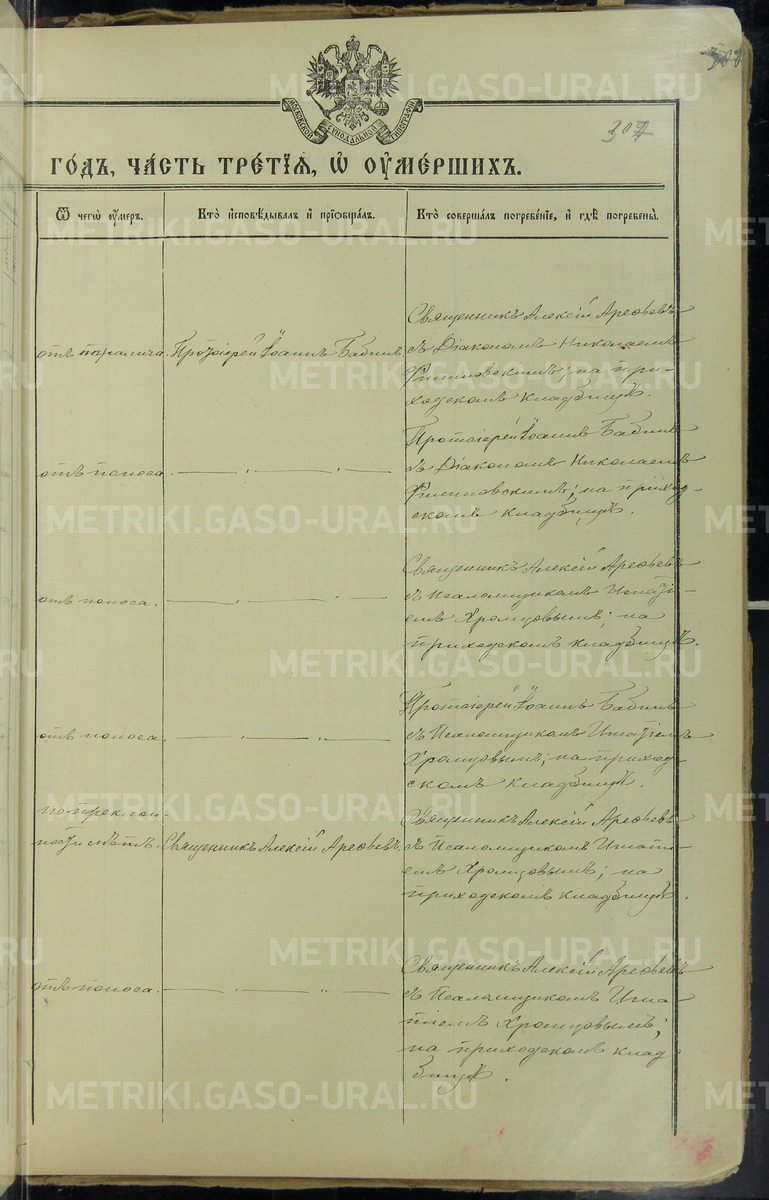 307
МОСКОВСКОЙ СѴНОДАЛЬНОЙ ТИПОГРАФІИ
го́дъ, ча́сть тре́тїѧ, ѡ҆ ᲂу҆ме́ршихъ.
Ѿ чегѡ̀ ᲂу҆́меръ.
Кто̀ и҆сповѣ́дывалъ и҆ прїѡбща́лъ.
Кто̀ соверша́лъ погребе́нїе, и҆ гдѣ̀ погребены̀.
отъ паралича.
Протоіерей Іоаннъ Бабинъ.
Священникъ Алексій Арефьевъ
съ Діакономъ Николаемъ
Филиповскимъ; на при-
ходскомъ кладбищѣ.
отъ поноса.
— „ — „ —
Протоіерей Іоаннъ Бабинъ
съ Діакономъ Николаемъ
Филиповскимъ; на приход-
скомъ кладбищѣ.
отъ поноса.
— „ — „ —
Священникъ Алексій Арефьевъ
съ Псаломщикомъ Игнаті-
емъ Хромцовымъ; на
приходскомъ кладбищѣ.
отъ поноса.
— „ — „ —
Протоіерей Іоаннъ Бабинъ
съ Псаломщикомъ Игнатіемъ
Хромцовымъ; на приход-
скомъ кладбищѣ.
по преклон-
ности лѣтъ.
Священникъ Алексій Арефьевъ.
Священникъ Алексій Арефьевъ
съ Псаломщикомъ Игнаті-
емъ Хромцовымъ; на
приходскомъ кладбищѣ.
отъ поноса.
— „ — „ —
Священникъ Алексій Арефьевъ
съ Псаломщикомъ Игна-
тіемъ Хромцовымъ;
на приходскомъ клад-
бищѣ.
METRIKI.GASO-URAL.RU